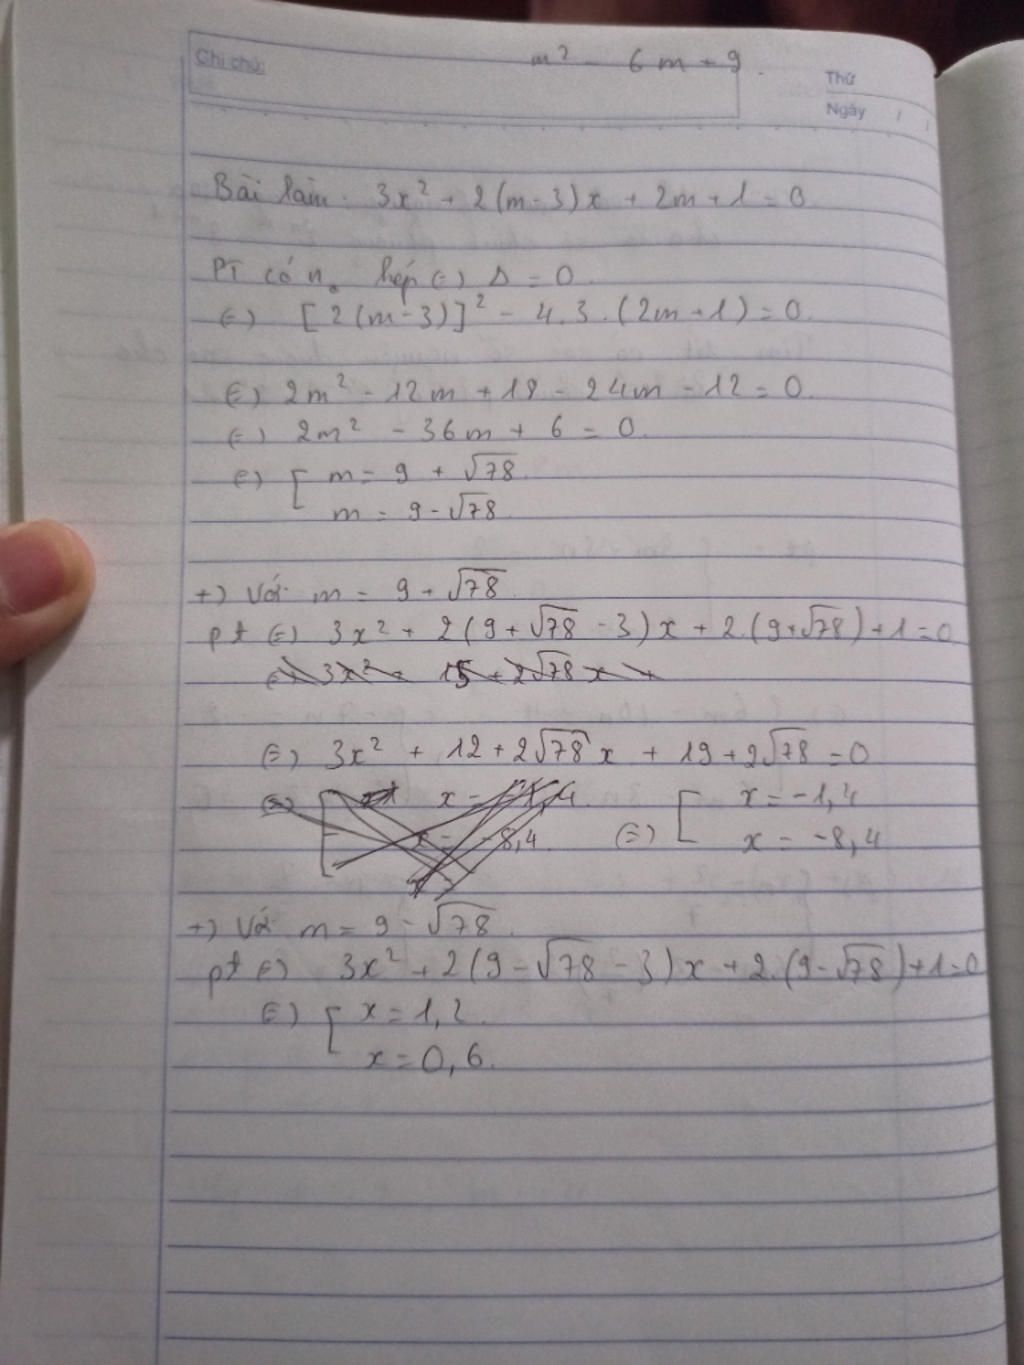 Ghi chú:
m² - 6m + 9.
Thứ
Ngày / /
Bài làm. 3x² + 2(m-3)x + 2m + 1 = 0
PT có n₀ kép (=) Δ = 0.
(=) [2(m-3)]² - 4.3.(2m+1) = 0.
(=) 2m² - 12m + 18 - 24m - 12 = 0.
(=) 2m² - 36m + 6 = 0.
(=) [ m = 9 + √78.
m = 9 - √78.
+) Với m = 9 + √78.
pt (=) 3x² + 2(9 + √78 - 3)x + 2.(9+√78) + 1 = 0
(=) 3x² + 15 + 2√78 x +
(=) 3x² + 12 + 2√78 x + 19 + 2√78 = 0
(=) [ x = -1,4. (=) [ x = -1,4
x = -8,4. x = -8,4
+) Với m = 9 - √78.
pt (=) 3x² + 2(9 - √78 - 3)x + 2.(9-√78) + 1 = 0
(=) [ x = 1,2.
x = 0,6.